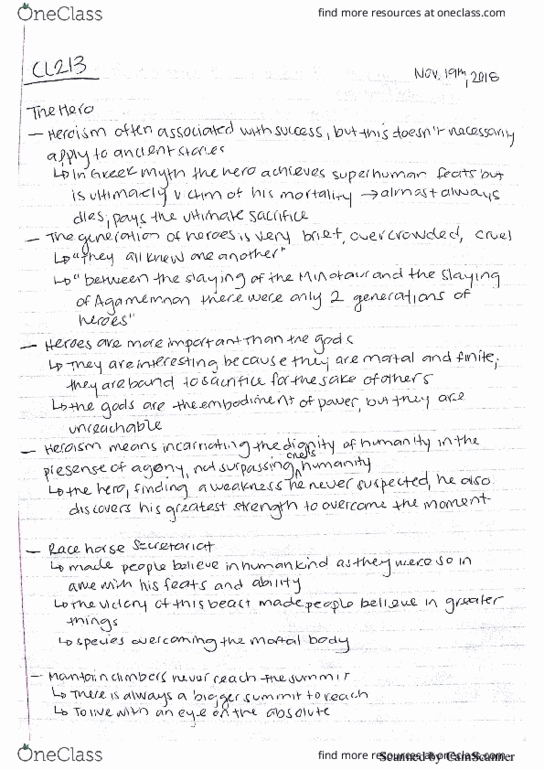 OneClass
find more resources at oneclass.com
CL213
Nov. 19th, 2018
The Hero
— Heroism often associated with success, but this doesn't necessarily
apply to ancient stories
↳ In Greek myth the hero achieves superhuman feats but
is ultimately victim of his mortality → almost always
dies, pays the ultimate sacrifice
— The generation of heroes is very brief, overcrowded, cruel
↳ "They all knew one another"
↳ "between the slaying of the Minotaur and the slaying
of Agamemnon there were only 2 generations of
heroes"
— Heroes are more important than the gods
↳ They are interesting because they are mortal and finite;
they are band to sacrifice for the sake of others
↳ the gods are the embodiment of power, but they are
unreachable
— Heroism means incarnating the dignity of humanity in the
presense of agony, not surpassing one's humanity
↳ the hero, finding a weakness he never suspected, he also
discovers his greatest strength to overcome the moment
— Race horse Secretariat
↳ made people believe in humankind as they were so in
awe with his feats and ability
↳ the victory of this beast made people believe in greater
things
↳ species overcoming the mortal body
— Mantain climbers never reach the summit
↳ There is always a bigger summit to reach
↳ To live with an eye on the absolute
OneClass
find more resources at oneclass.com
Scanned by CamScanner